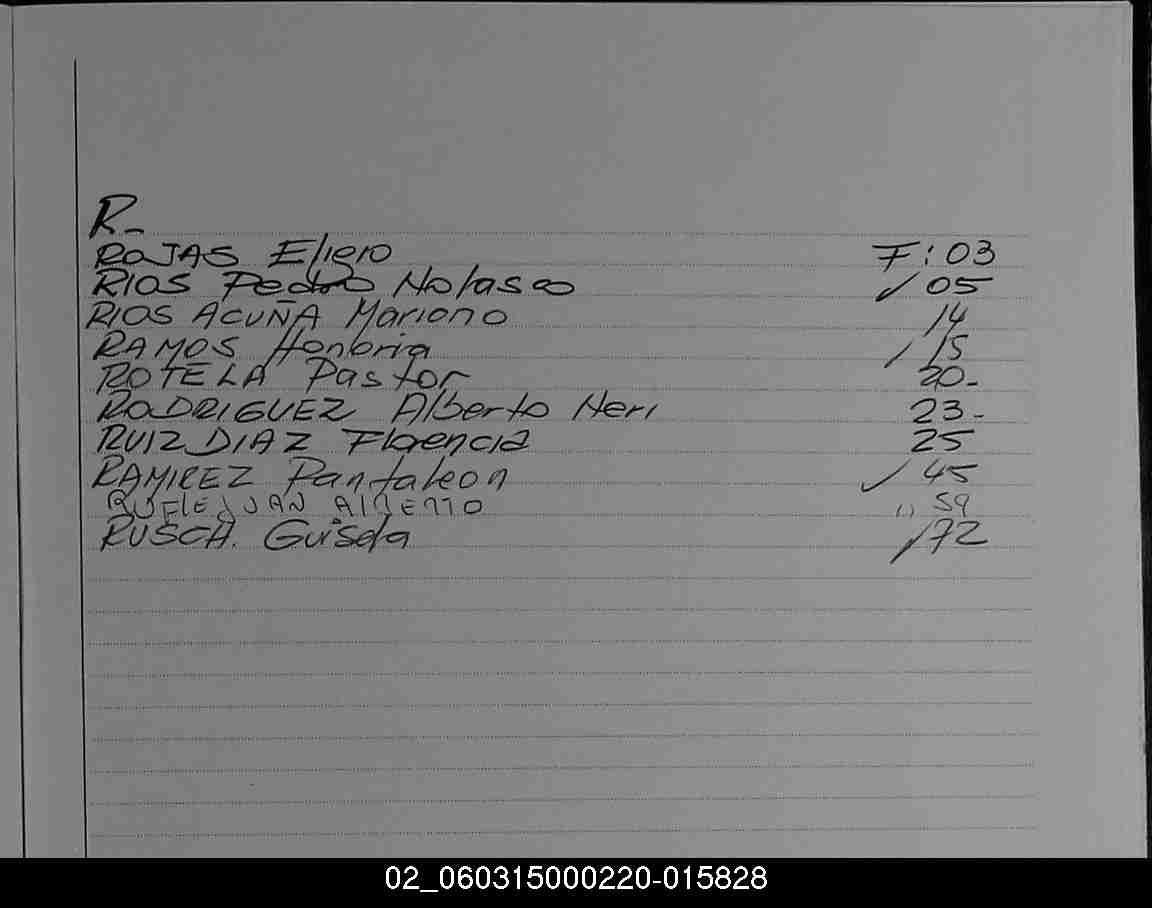 R-
ROJAS Eliero F: 03
RIOS Pedro Nolasco / 05
RIOS ACUÑA Mariano / 14
RAMOS Honoria / 15
ROTELA Pastor 20-
RODRIGUEZ Alberto Neri 23-
RUIZ DIAZ Florencia 25
RAMIREZ Pantaleon / 45
JUAN Alberto 59
RUSCH. Guisela / 72
02_060315000220-015828